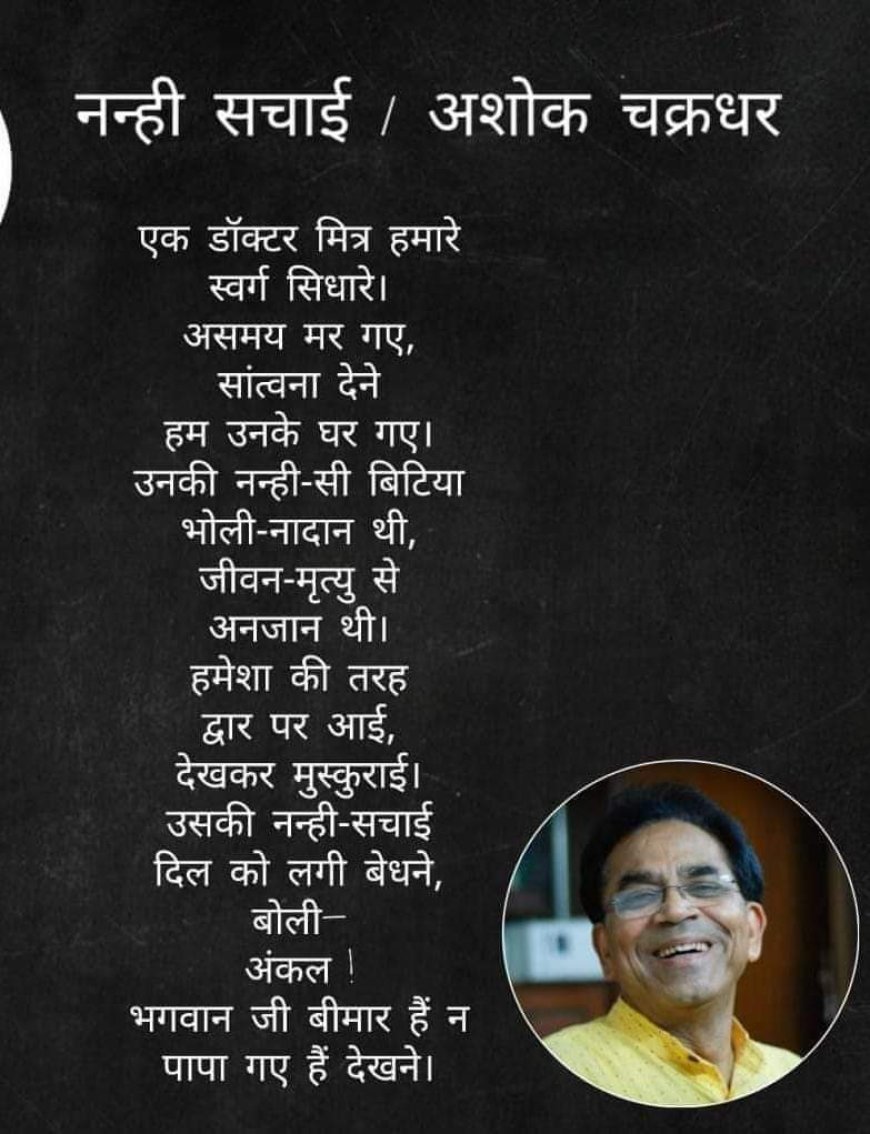 नन्ही सचाई / अशोक चक्रधर
एक डॉक्टर मित्र हमारे
स्वर्ग सिधारे।
असमय मर गए,
सांत्वना देने
हम उनके घर गए।
उनकी नन्ही-सी बिटिया
भोली-नादान थी,
जीवन-मृत्यु से
अनजान थी।
हमेशा की तरह
द्वार पर आई,
देखकर मुस्कुराई।
उसकी नन्ही-सचाई
दिल को लगी बेधने,
बोली—
अंकल !
भगवान जी बीमार हैं न
पापा गए हैं देखने।